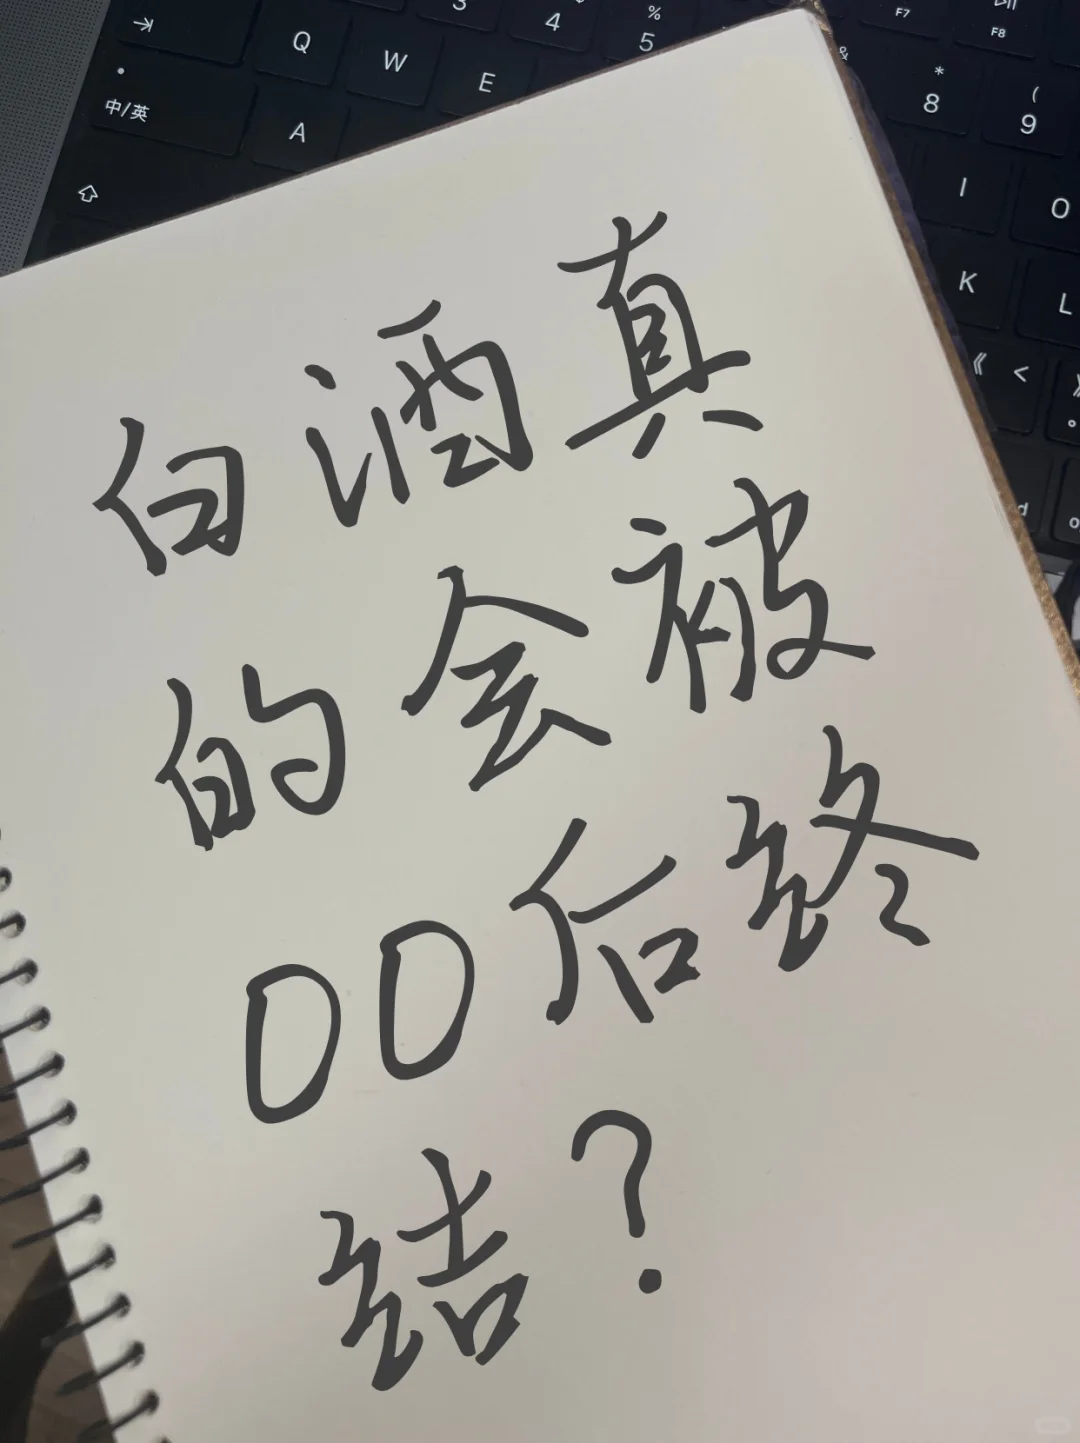 ⇥ Q W E 3 4 % 5 & F7 F8
中/英 A * 8 ( 9
⇧ I O
K L
《 <
白酒真
的会被
00后终
结？